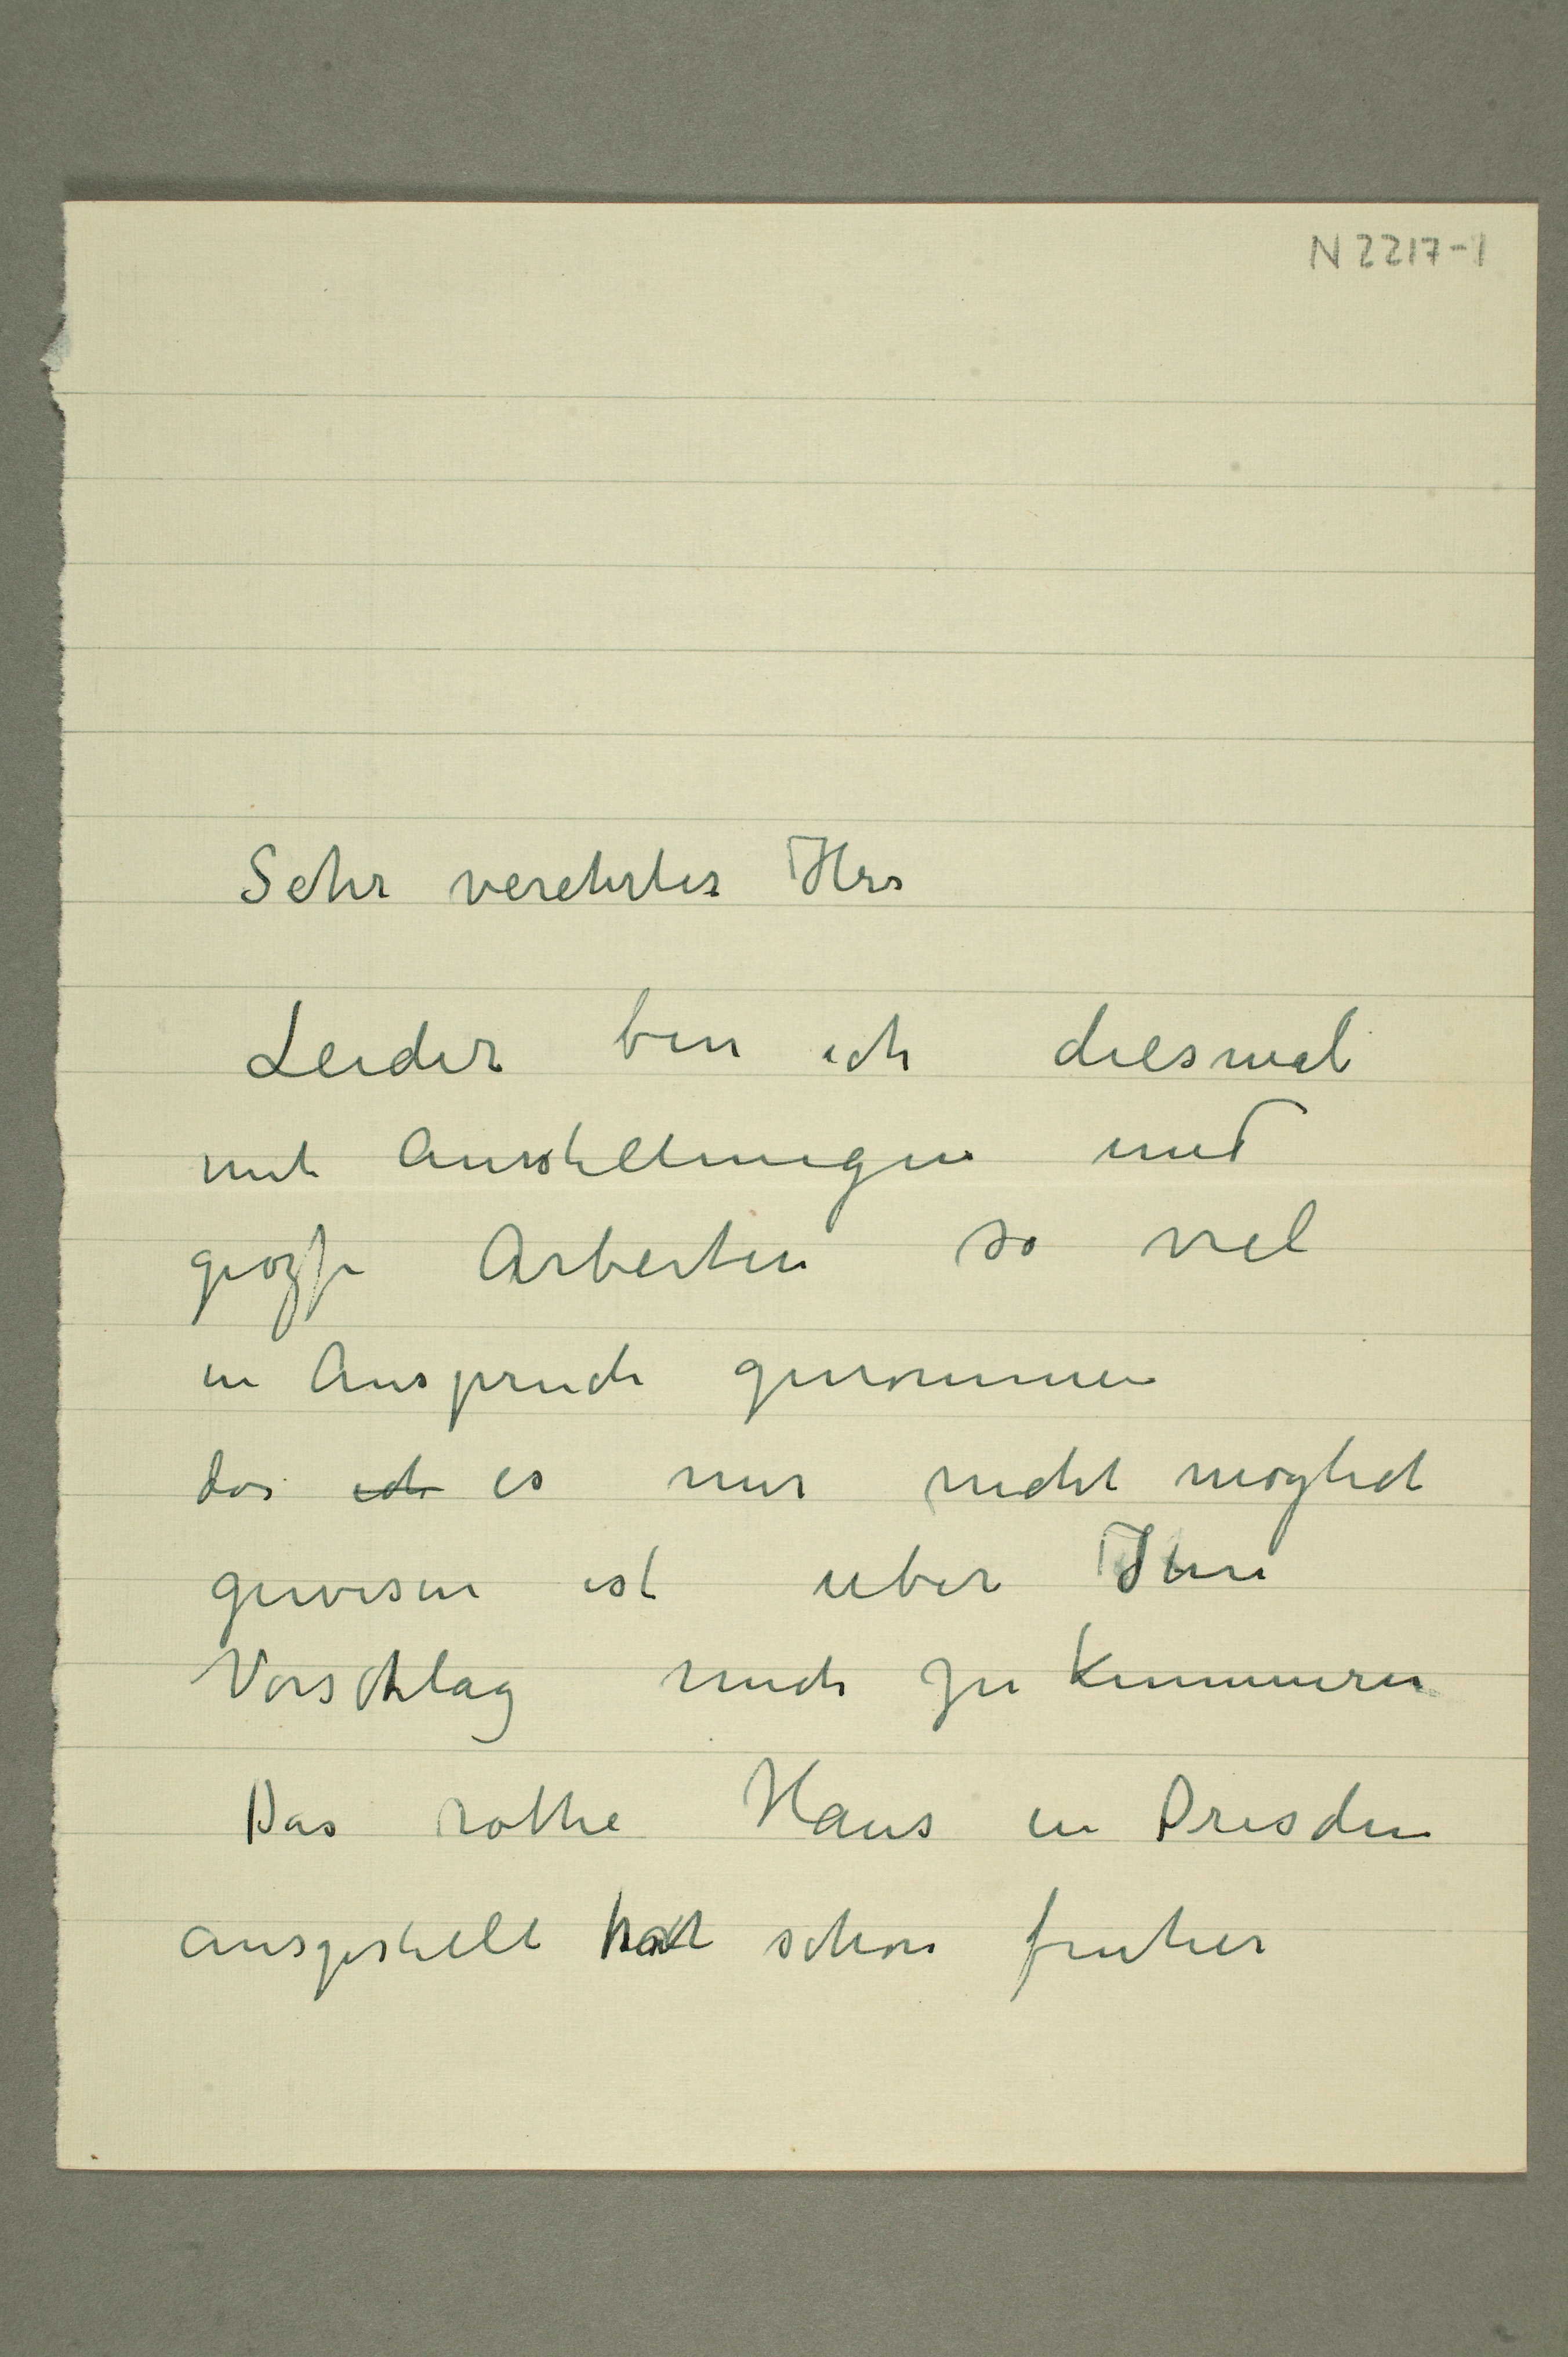 N 2217-1
Sehr verehrter Herr
Leider bin ich diesmal
mit Ausstellungen und
große Arbeiten so viel
in Anspruch genommen
das ich es mir nicht möglich
gewesen ist uber Ihre
Vorschlag mich zu kummern
Das rothe Haus in Dresden
ausgestellt hat schon fruher